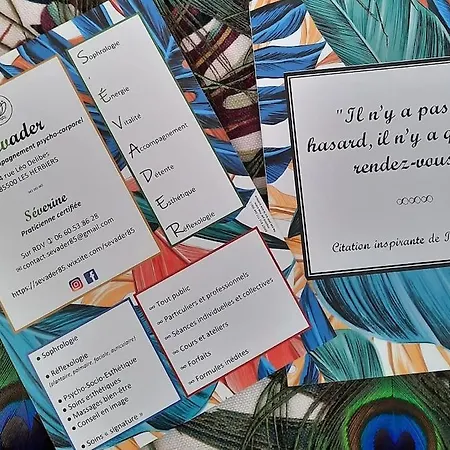 vader
mpagnement psycho-corporel
4 rue Léo Delibes
85500 LES HERBIERS
Séverine
Praticienne certifiée
Sur RDV 06 60 53 86 28
contact.sevader85@gmail.com
https://sevader85.wixsite.com/sevader85
Sophrologie
Énergie
Vitalité
Accompagnement
Détente
Esthétique
Réflexologie
Tout public
Particuliers et professionnels
Séances individuelles et collectives
Cours et ateliers
Forfaits
Formules inédites
Sophrologie
Réflexologie
(plantaire, palmaire, faciale, auriculaire)
Psycho-Socio-Esthétique
Soins esthétiques
Massages bien-être
Conseil en image
Soins « signature »
"Il n'y a pas
hasard, il n'y a q
rendez-vous
Citation inspirante de